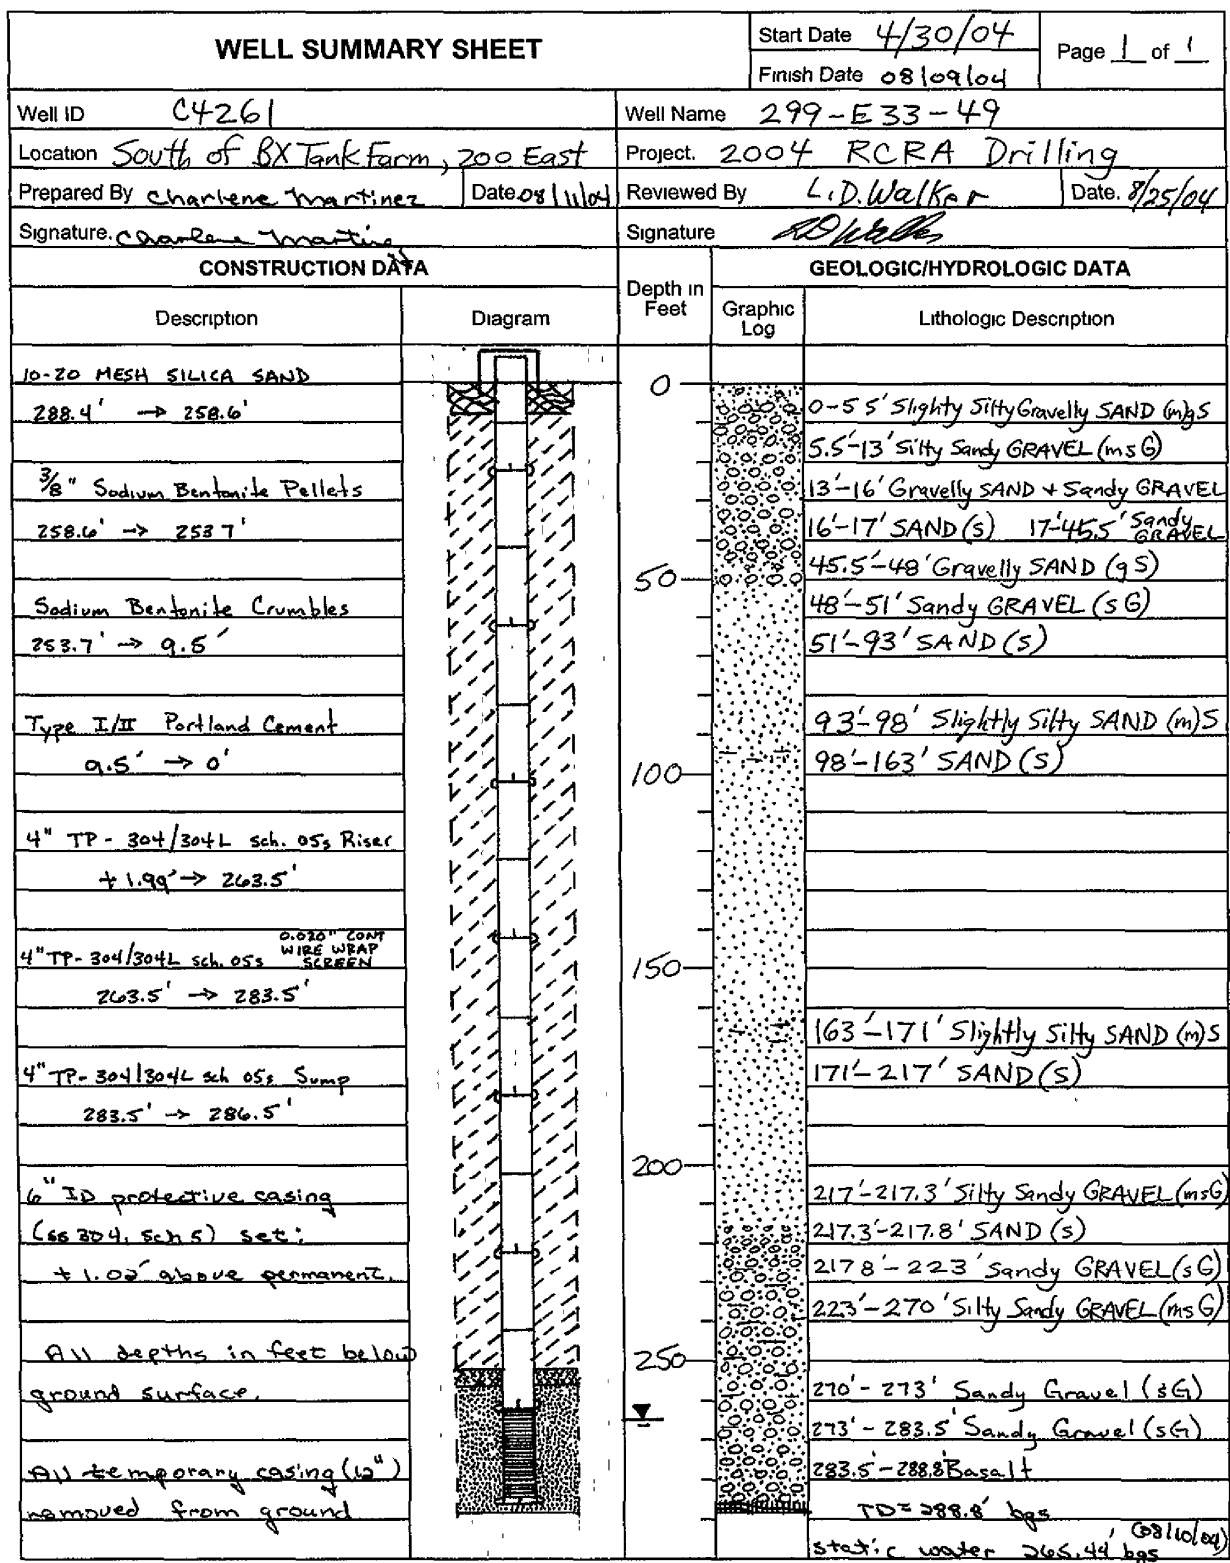 WELL SUMMARY SHEET
Start Date 4/30/04
Finish Date 08/09/04
Page 1 of 1
Well ID C4261
Well Name 299-E33-49
Location South of BX Tank Farm, 200 East
Project. 2004 RCRA Drilling
Prepared By Charlene Martinez Date. 08/11/04
Reviewed By L.D. Walker Date. 8/25/04
Signature. Charlene Martinez
Signature
CONSTRUCTION DATA
GEOLOGIC/HYDROLOGIC DATA
Description
Diagram
Depth in Feet
Graphic Log
Lithologic Description
10-20 MESH SILICA SAND
288.4' → 258.6'
3/8" Sodium Bentonite Pellets
258.6' → 253 7'
Sodium Bentonite Crumbles
253.7' → 9.5'
Type I/II Portland Cement
9.5' → 0'
4" TP-304/304L sch. 05s Riser
+1.99' → 263.5'
4" TP-304/304L sch. 05s 0.020" CONT WIRE WRAP SCREEN
263.5' → 283.5'
4" TP-304/304L sch 05s Sump
283.5' → 286.5'
6" ID protective casing
(ss 304, sch 5) set:
+1.02' above permanent.
All depths in feet below
ground surface.
All temporary casing (12")
removed from ground
0
50
100
150
200
250
0-5 5' Slighty Silty Gravelly SAND (m)gS
5.5'-13' Silty Sandy GRAVEL (msG)
13'-16' Gravelly SAND + Sandy GRAVEL
16'-17' SAND (s) 17'-45.5' Sandy GRAVEL
45.5'-48' Gravelly SAND (gS)
48'-51' Sandy GRAVEL (sG)
51'-93' SAND (s)
93'-98' Slightly Silty SAND (m)S
98'-163' SAND (s)
163'-171' Slightly Silty SAND (m)S
171'-217' SAND (s)
217'-217.3' Silty Sandy GRAVEL (msG)
217.3'-217.8' SAND (s)
217 8'-223' Sandy GRAVEL (sG)
223'-270' Silty Sandy GRAVEL (msG)
270'-273' Sandy Gravel (sG)
273'-283.5' Sandy Gravel (sG)
283.5'-288.8' Basalt
TD = 288.8' bgs
static water 265.44' bgs (08/10/04)